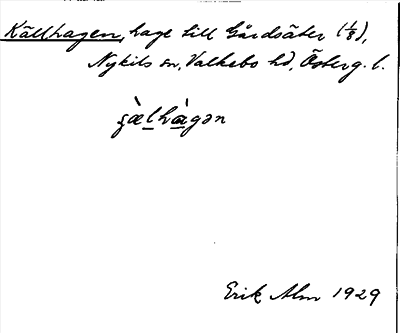 Källhagen, hage till Gårdsäter (1/8),
Nykils sn, Valkebo hd, Österg. l.
ʂæ̀lhàgən
Erik Alm 1929